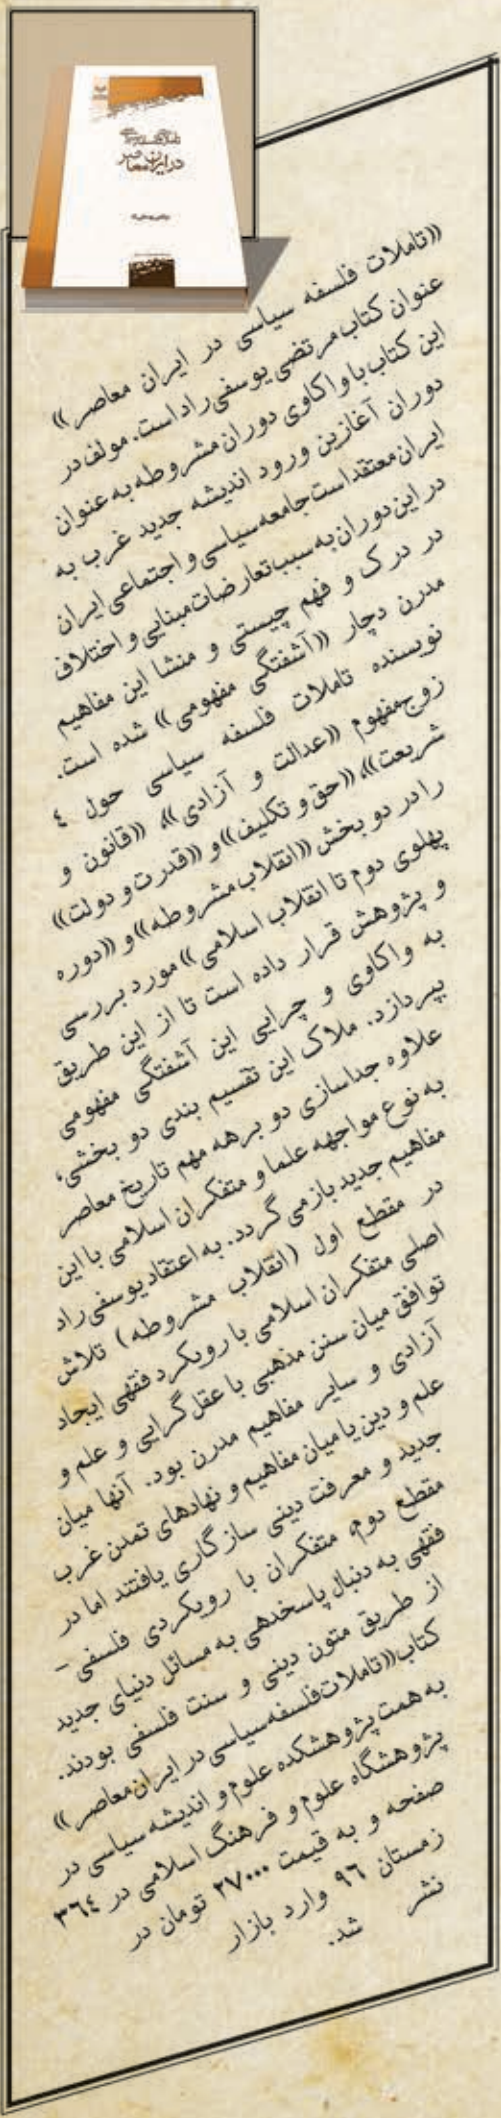 در ایران معاصر
«تاملات فلسفه سیاسی در ایران معاصر»
عنوان کتاب مرتضی یوسفی راد است. مولف در
این کتاب با واکاوی دوران مشروطه به عنوان
دوران آغازین ورود اندیشه جدید غرب به
ایران معتقد است جامعه سیاسی و اجتماعی ایران
در این دوران به سبب تعارضات مبنایی و اختلاف
در درک و فهم چیستی و منشا این مفاهیم
مدرن دچار «آشفتگی مفهومی» شده است.
نویسنده تاملات فلسفه سیاسی حول ٤
زوج مفهوم «عدالت و آزادی»، «قانون و
شریعت»، «حق و تکلیف» و «قدرت و دولت»
را در دو بخش «انقلاب مشروطه» و «دوره
پهلوی دوم تا انقلاب اسلامی» مورد بررسی
و پژوهش قرار داده است تا از این طریق
به واکاوی و چرایی این آشفتگی مفهومی
بپردازد. ملاک این تقسیم بندی دو بخشی،
علاوه جداسازی دو برهه مهم تاریخ معاصر
به نوع مواجهه علما و متفکران اسلامی با این
مفاهیم جدید بازمی گردد. به اعتقاد یوسفی راد
در مقطع اول (انقلاب مشروطه) تلاش
اصلی متفکران اسلامی با رویکرد فقهی ایجاد
توافق میان سنن مذهبی با عقل گرایی و علم و
آزادی و سایر مفاهیم مدرن بود. آنها میان
علم و دین یا میان مفاهیم و نهادهای تمدن غرب
جدید و معرفت دینی سازگاری یافتند اما در
مقطع دوم، متفکران با رویکردی فلسفی -
فقهی به دنبال پاسخدهی به مسائل دنیای جدید
از طریق متون دینی و سنت فلسفی بودند.
کتاب «تاملات فلسفه سیاسی در ایران معاصر»
به همت پژوهشکده علوم و اندیشه سیاسی در
پژوهشگاه علوم و فرهنگ اسلامی در ٣٦٤
صفحه و به قیمت ٢٧٠٠٠ تومان در
زمستان ٩٦ وارد بازار
نشر شد.